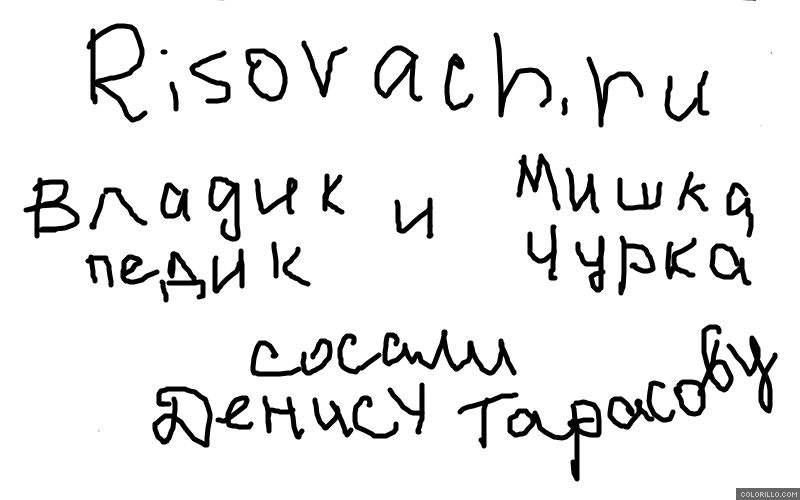 Risovach.ru
Владик и Мишка
педик чурка
сосали
Денису Тарасову
COLORILLO.COM